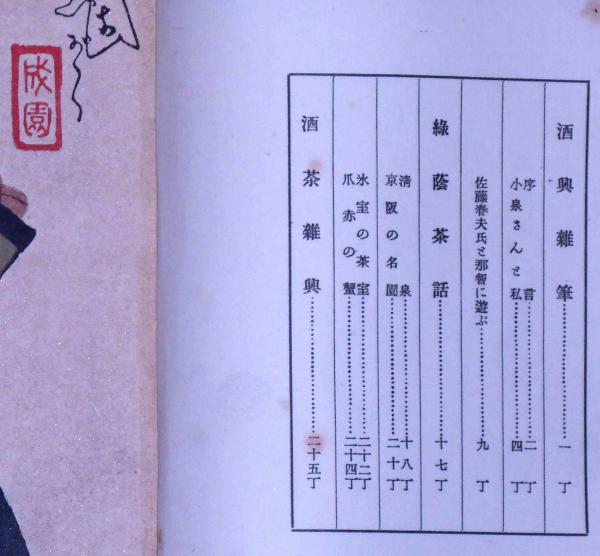 酒興雜筆…………一丁
序言…………二丁
小泉さんと私…………四丁
佐藤春夫氏と那智に遊ぶ…………九丁
綠蔭茶話…………十七丁
淸泉…………十八丁
京阪の名園…………二十丁
氷室の茶室…………二十二丁
爪赤の蟹…………二十四丁
酒茶雜興…………二十五丁
成園